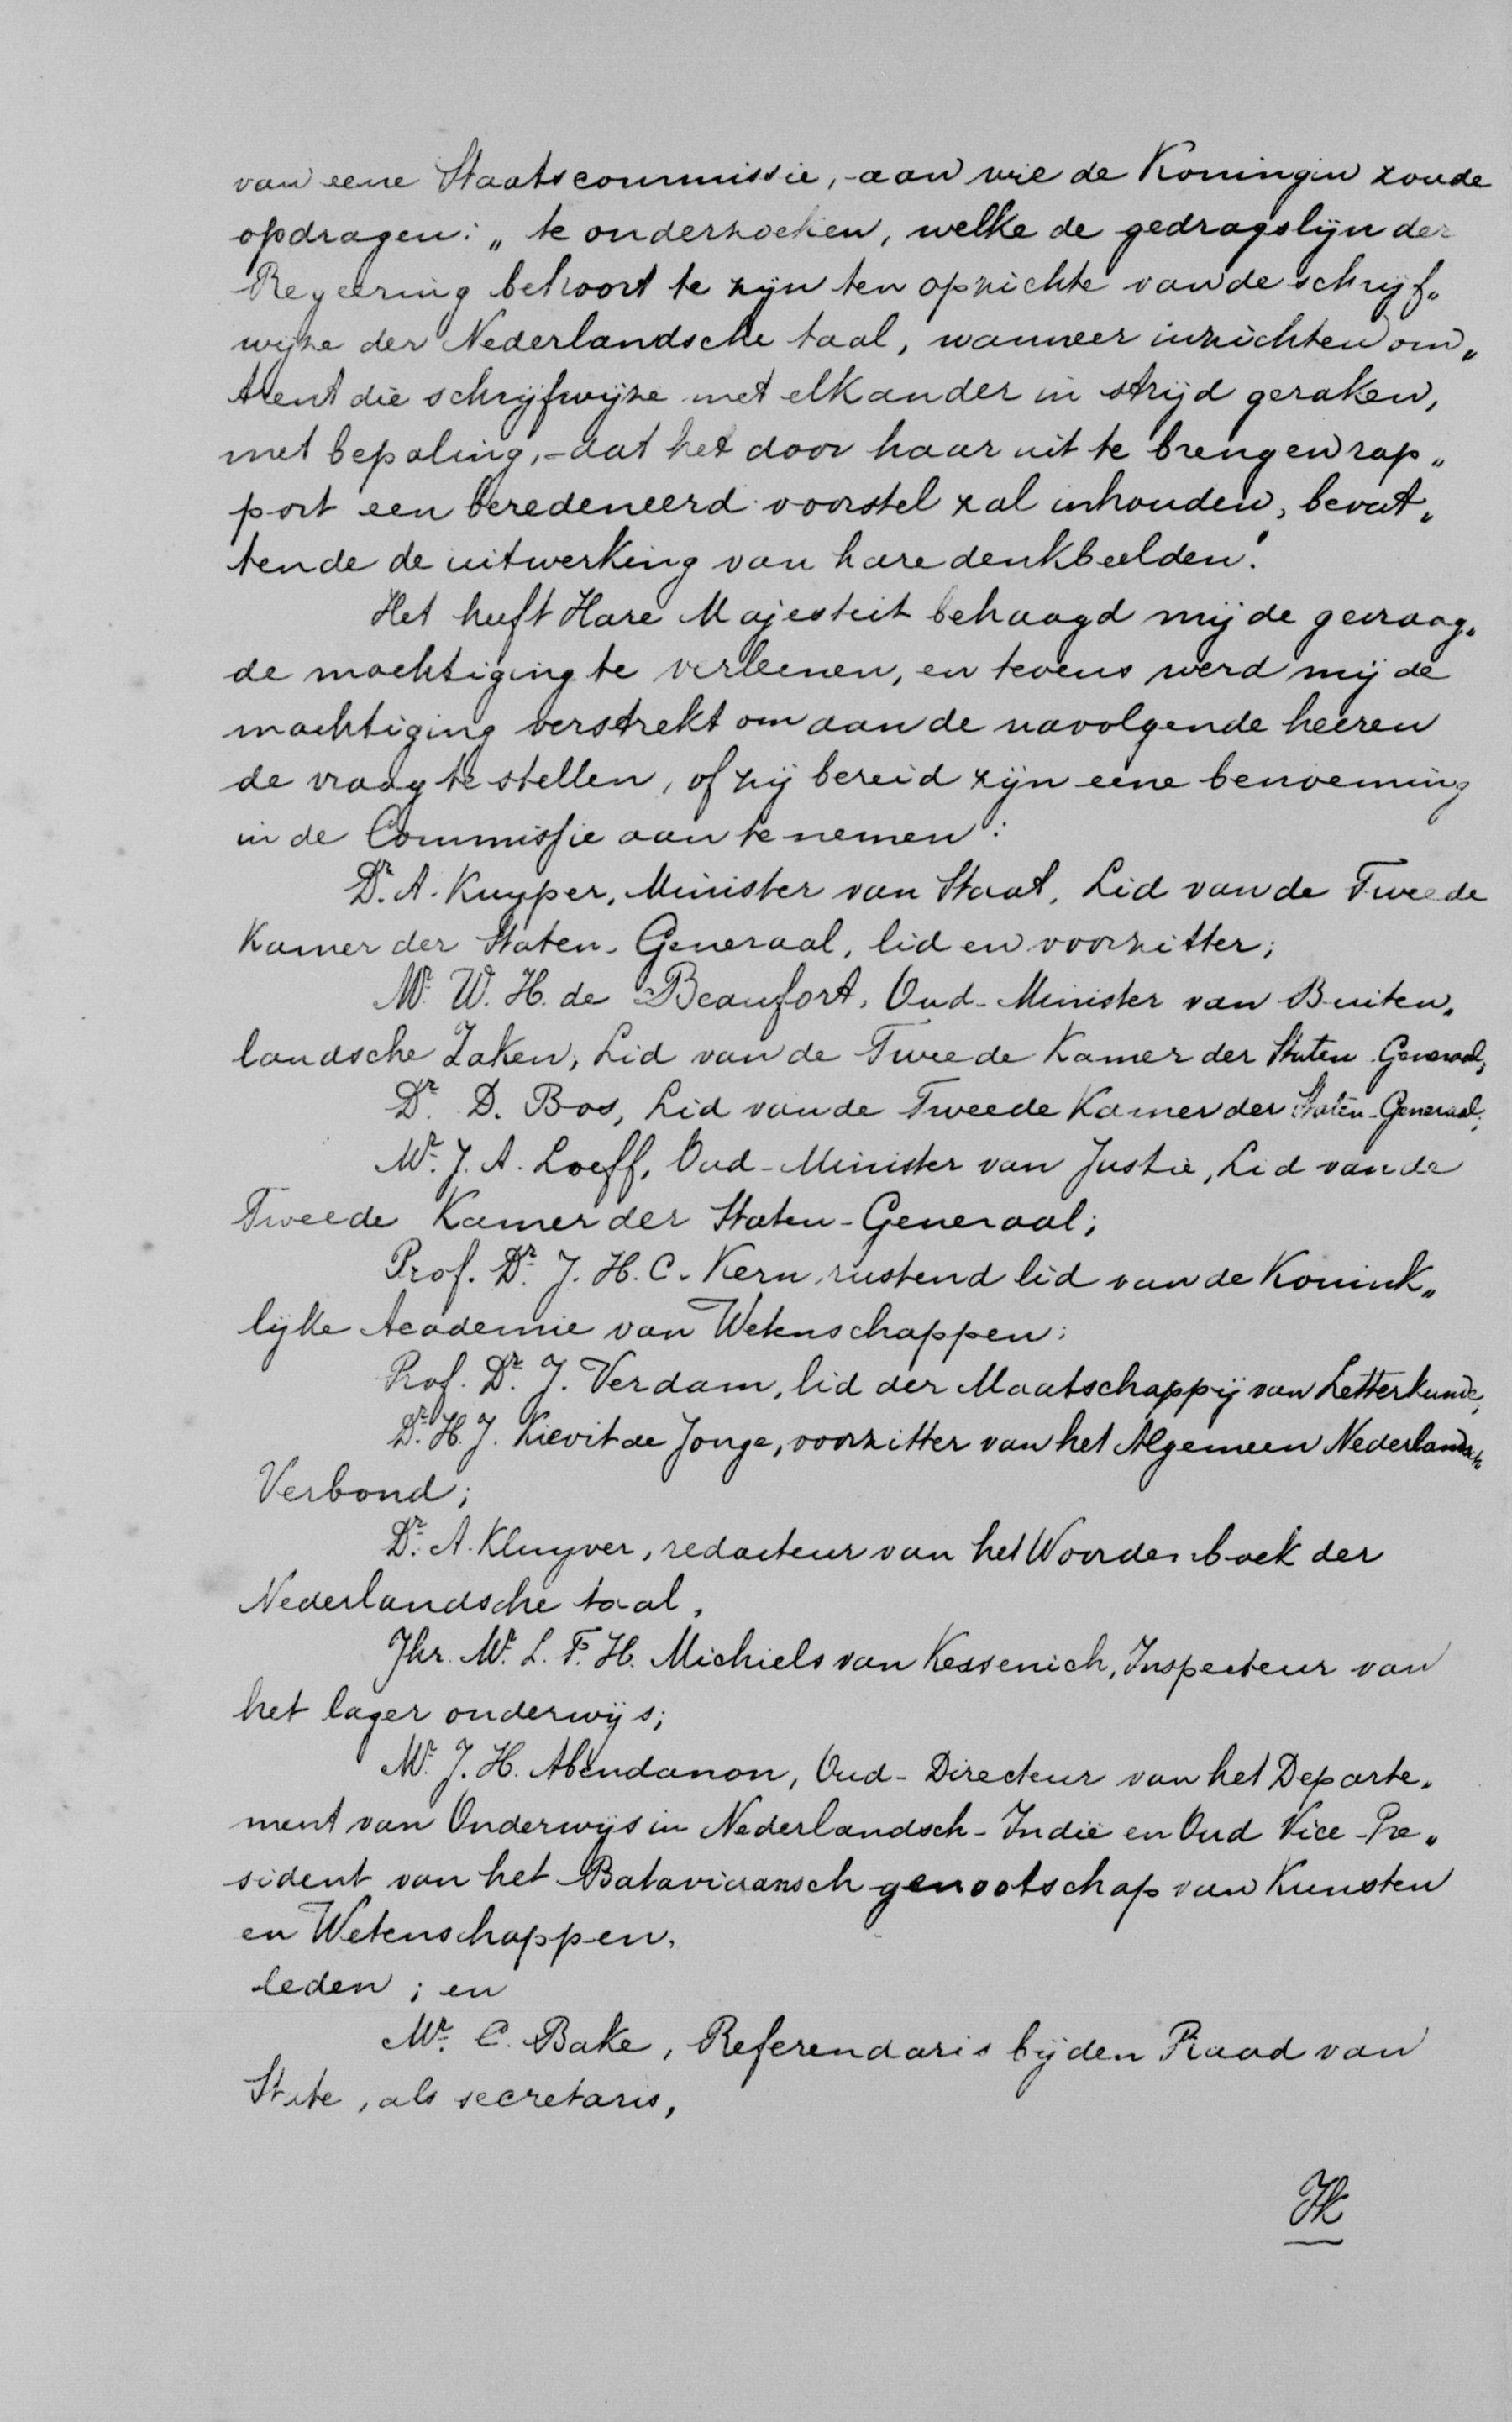 van eene Staatscommissie, - aan wie de Koningin zoude
opdragen: „ te onderzoeken, welke de gedragslijn der
Regeering behoort te zijn ten opzichte van de schrijf„
wijze der Nederlandsche taal, wanneer inzichten om„
trent die schrijfwijze met elkander in strijd geraken,
met bepaling, - dat het door haar uit te brengen rap„
port een beredeneerd voorstel zal inhouden, bevat„
tende de uitwerking van hare denkbeelden."
Het heeft Hare Majesteit behaagd mij de gevraag„
de machtiging te verleenen, en tevens werd mij de
machtiging verstrekt om aan de navolgende heeren
de vraag te stellen, of zij bereid zijn eene benoeming
in de Commissie aan te nemen:
Dr. A. Kuyper, Minister van Staat, Lid van de Tweede
Kamer der Staten-Generaal, lid en voorzitter;
Mr. W. H. de Beaufort, Oud-Minister van Buiten„
landsche Zaken, Lid van de Tweede Kamer der Staten-Generaal;
Dr. D. Bos, Lid van de Tweede Kamer der Staten-Generaal;
Mr. J. A. Loeff, Oud-Minister van Justie, Lid van de
Tweede Kamer der Staten-Generaal;
Prof. Dr. J. H. C. Kern, rustend lid van de Konink„
lijke Academie van Wetenschappen;
Prof. Dr. J. Verdam, lid der Maatschappij van Letterkunde;
Dr. H. J. Kievit de Jonge, voorzitter van het Algemeen Nederlandsch
Verbond;
Dr. A. Kluyver, redacteur van het Woordenboek der
Nederlandsche taal,
Jhr. Mr. L. F. H. Michiels van Kessenich, Inspecteur van
het lager onderwijs;
Mr. J. H. Abendanon, Oud-Directeur van het Departe„
ment van Onderwijs in Nederlandsch-Indië en Oud Vice-Pre„
sident van het Bataviaansch genootschap van Kunsten
en Wetenschappen,
leden; en
Mr. C. Bake, Referendaris bij den Raad van
State, als secretaris,
Ik